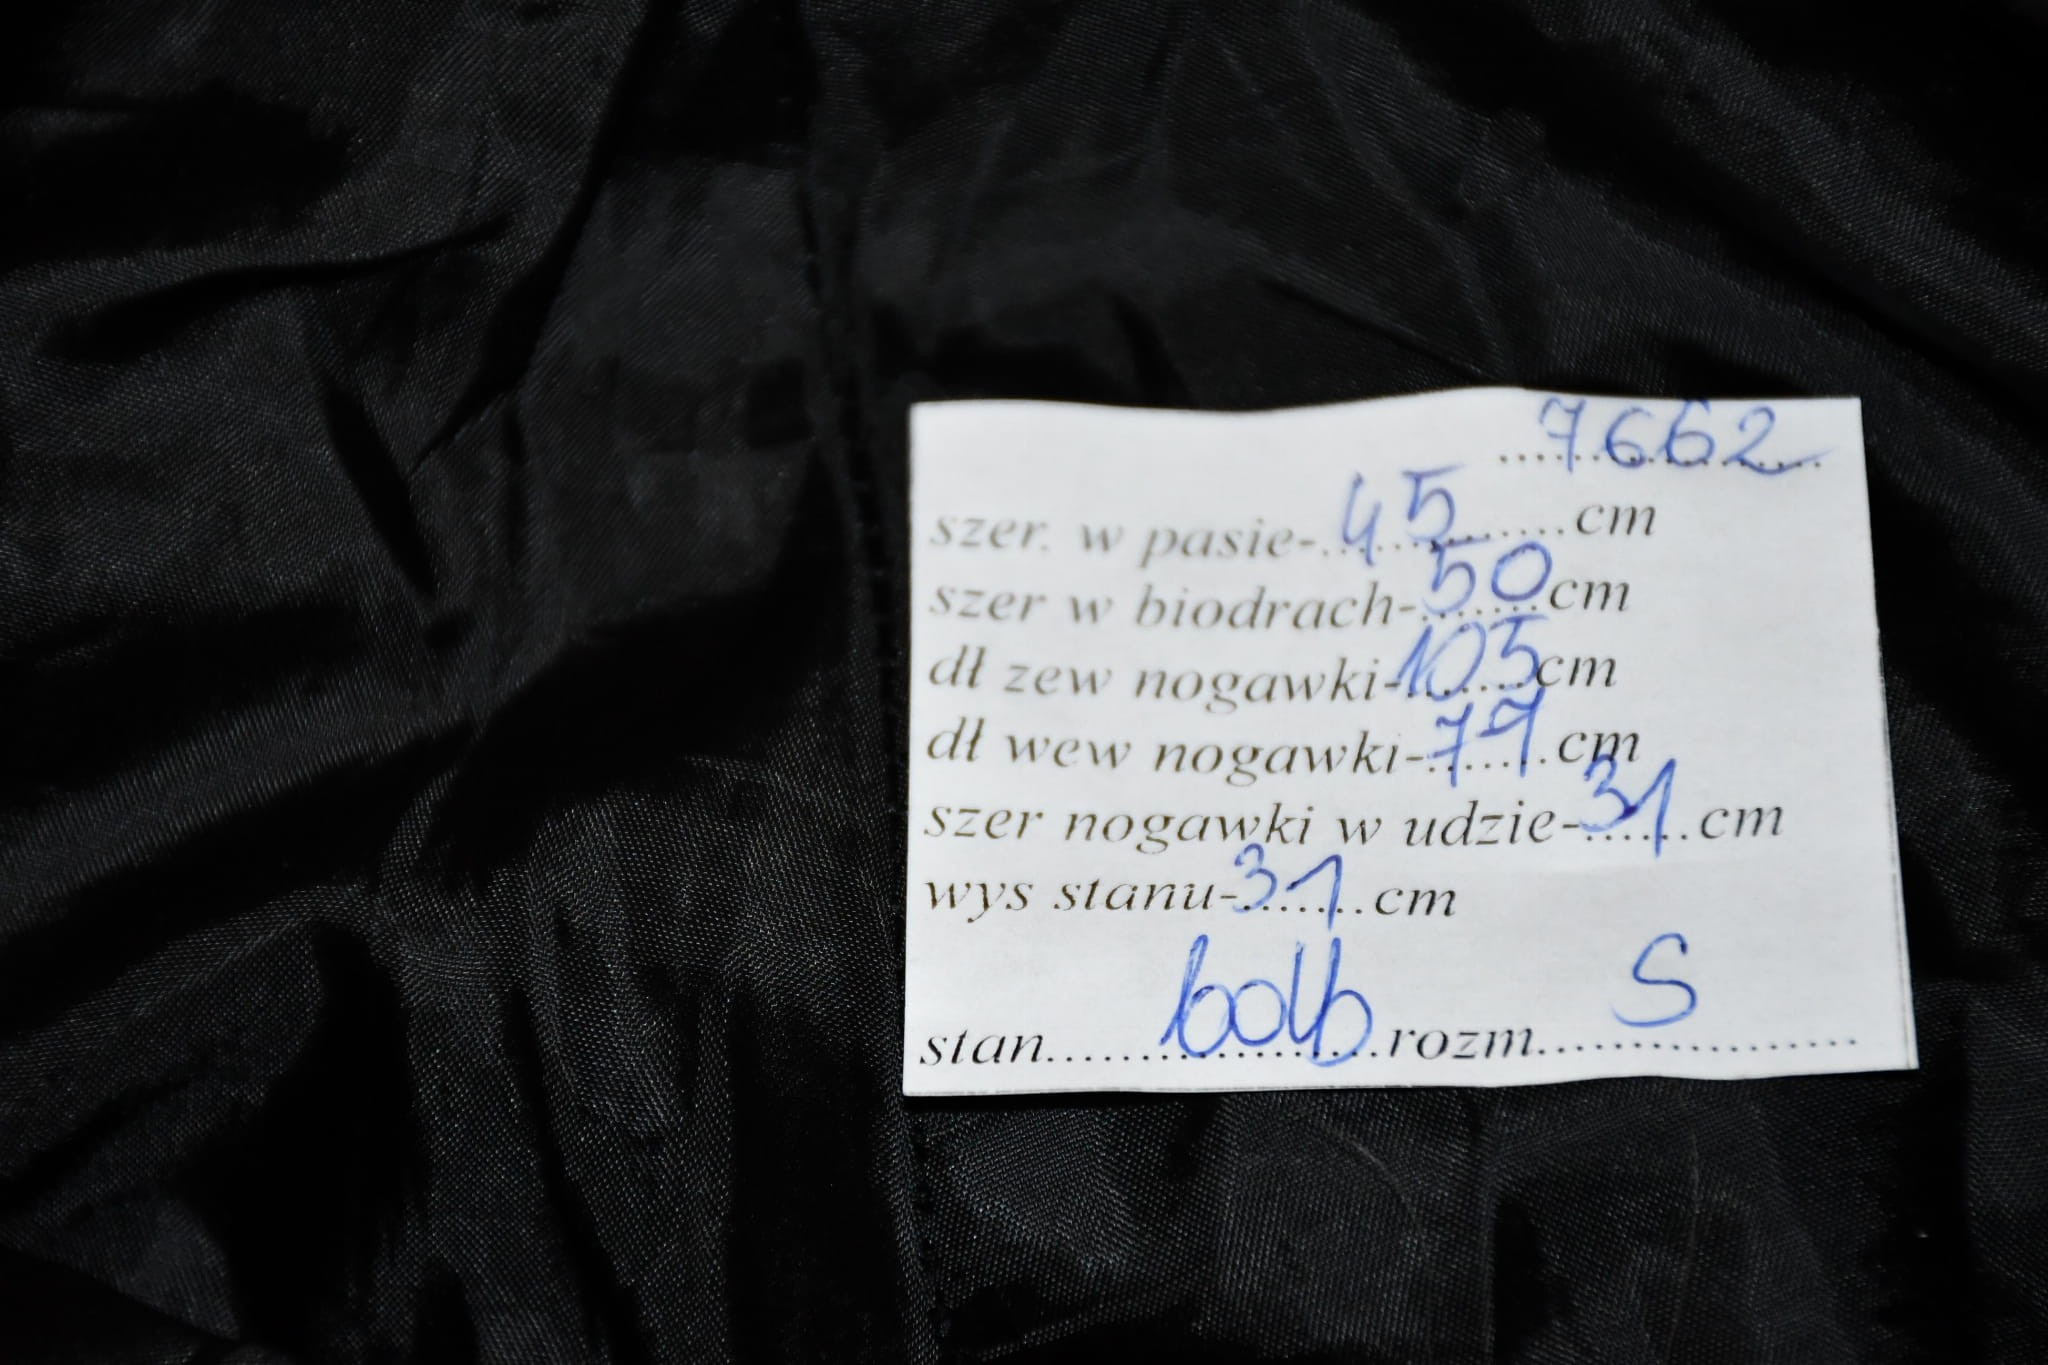 7662
szer. w pasie-45cm
szer w biodrach-50cm
dł zew nogawki-105cm
dł wew nogawki-77cm
szer nogawki w udzie-31cm
wys stanu-31cm
stan..................rozm S